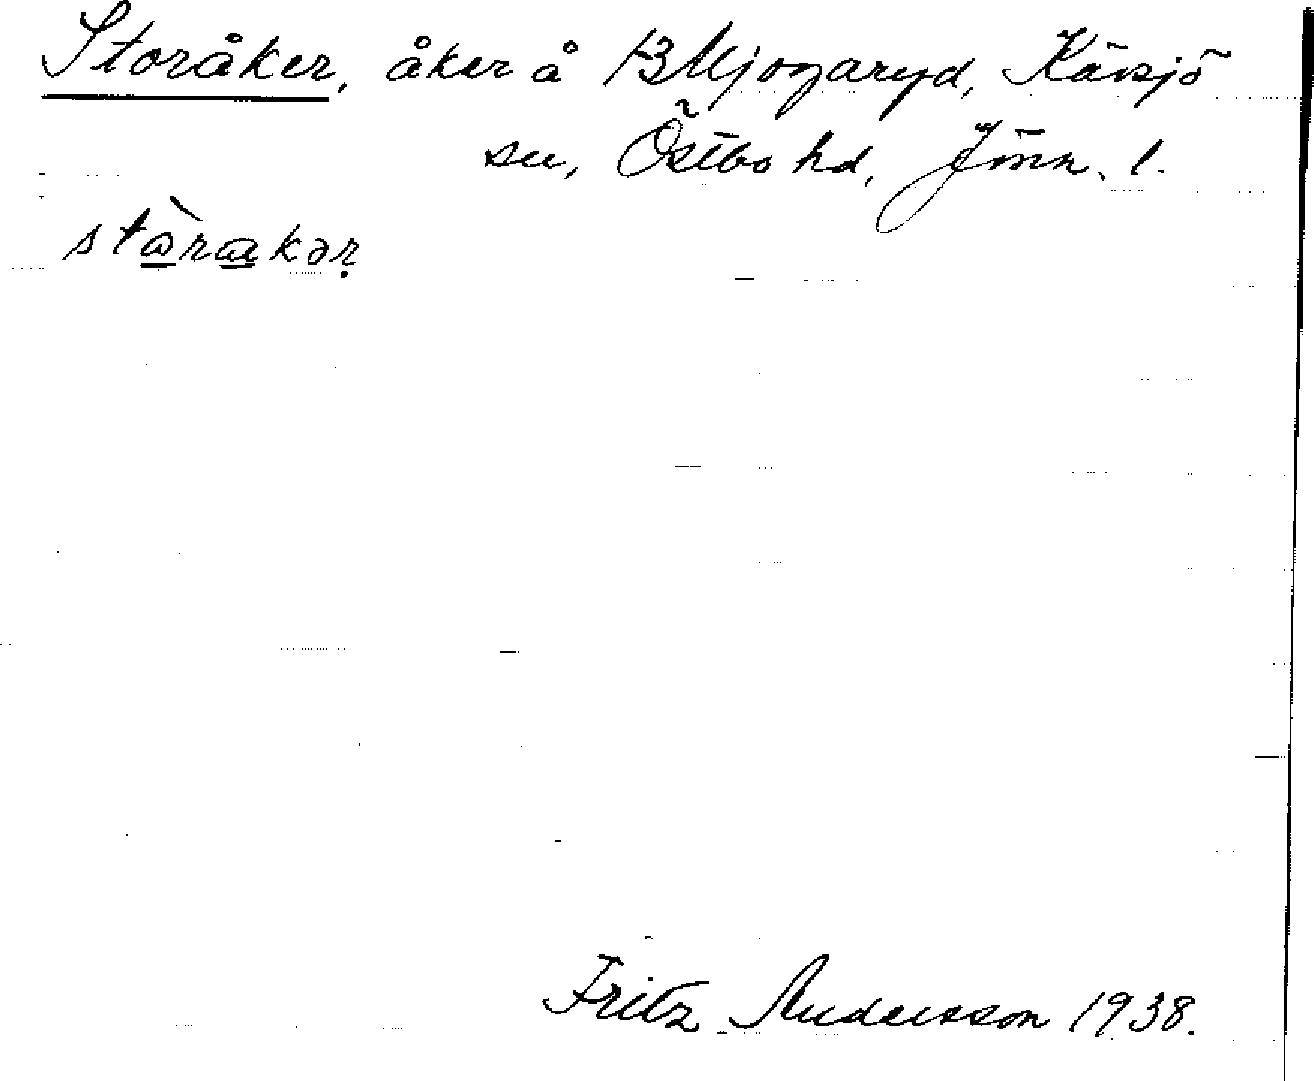 Storåker, åker å Mjogaryd, Kävsjö
sn, Östbo hd, Jönk. l.
Fritz Andersson 1938.